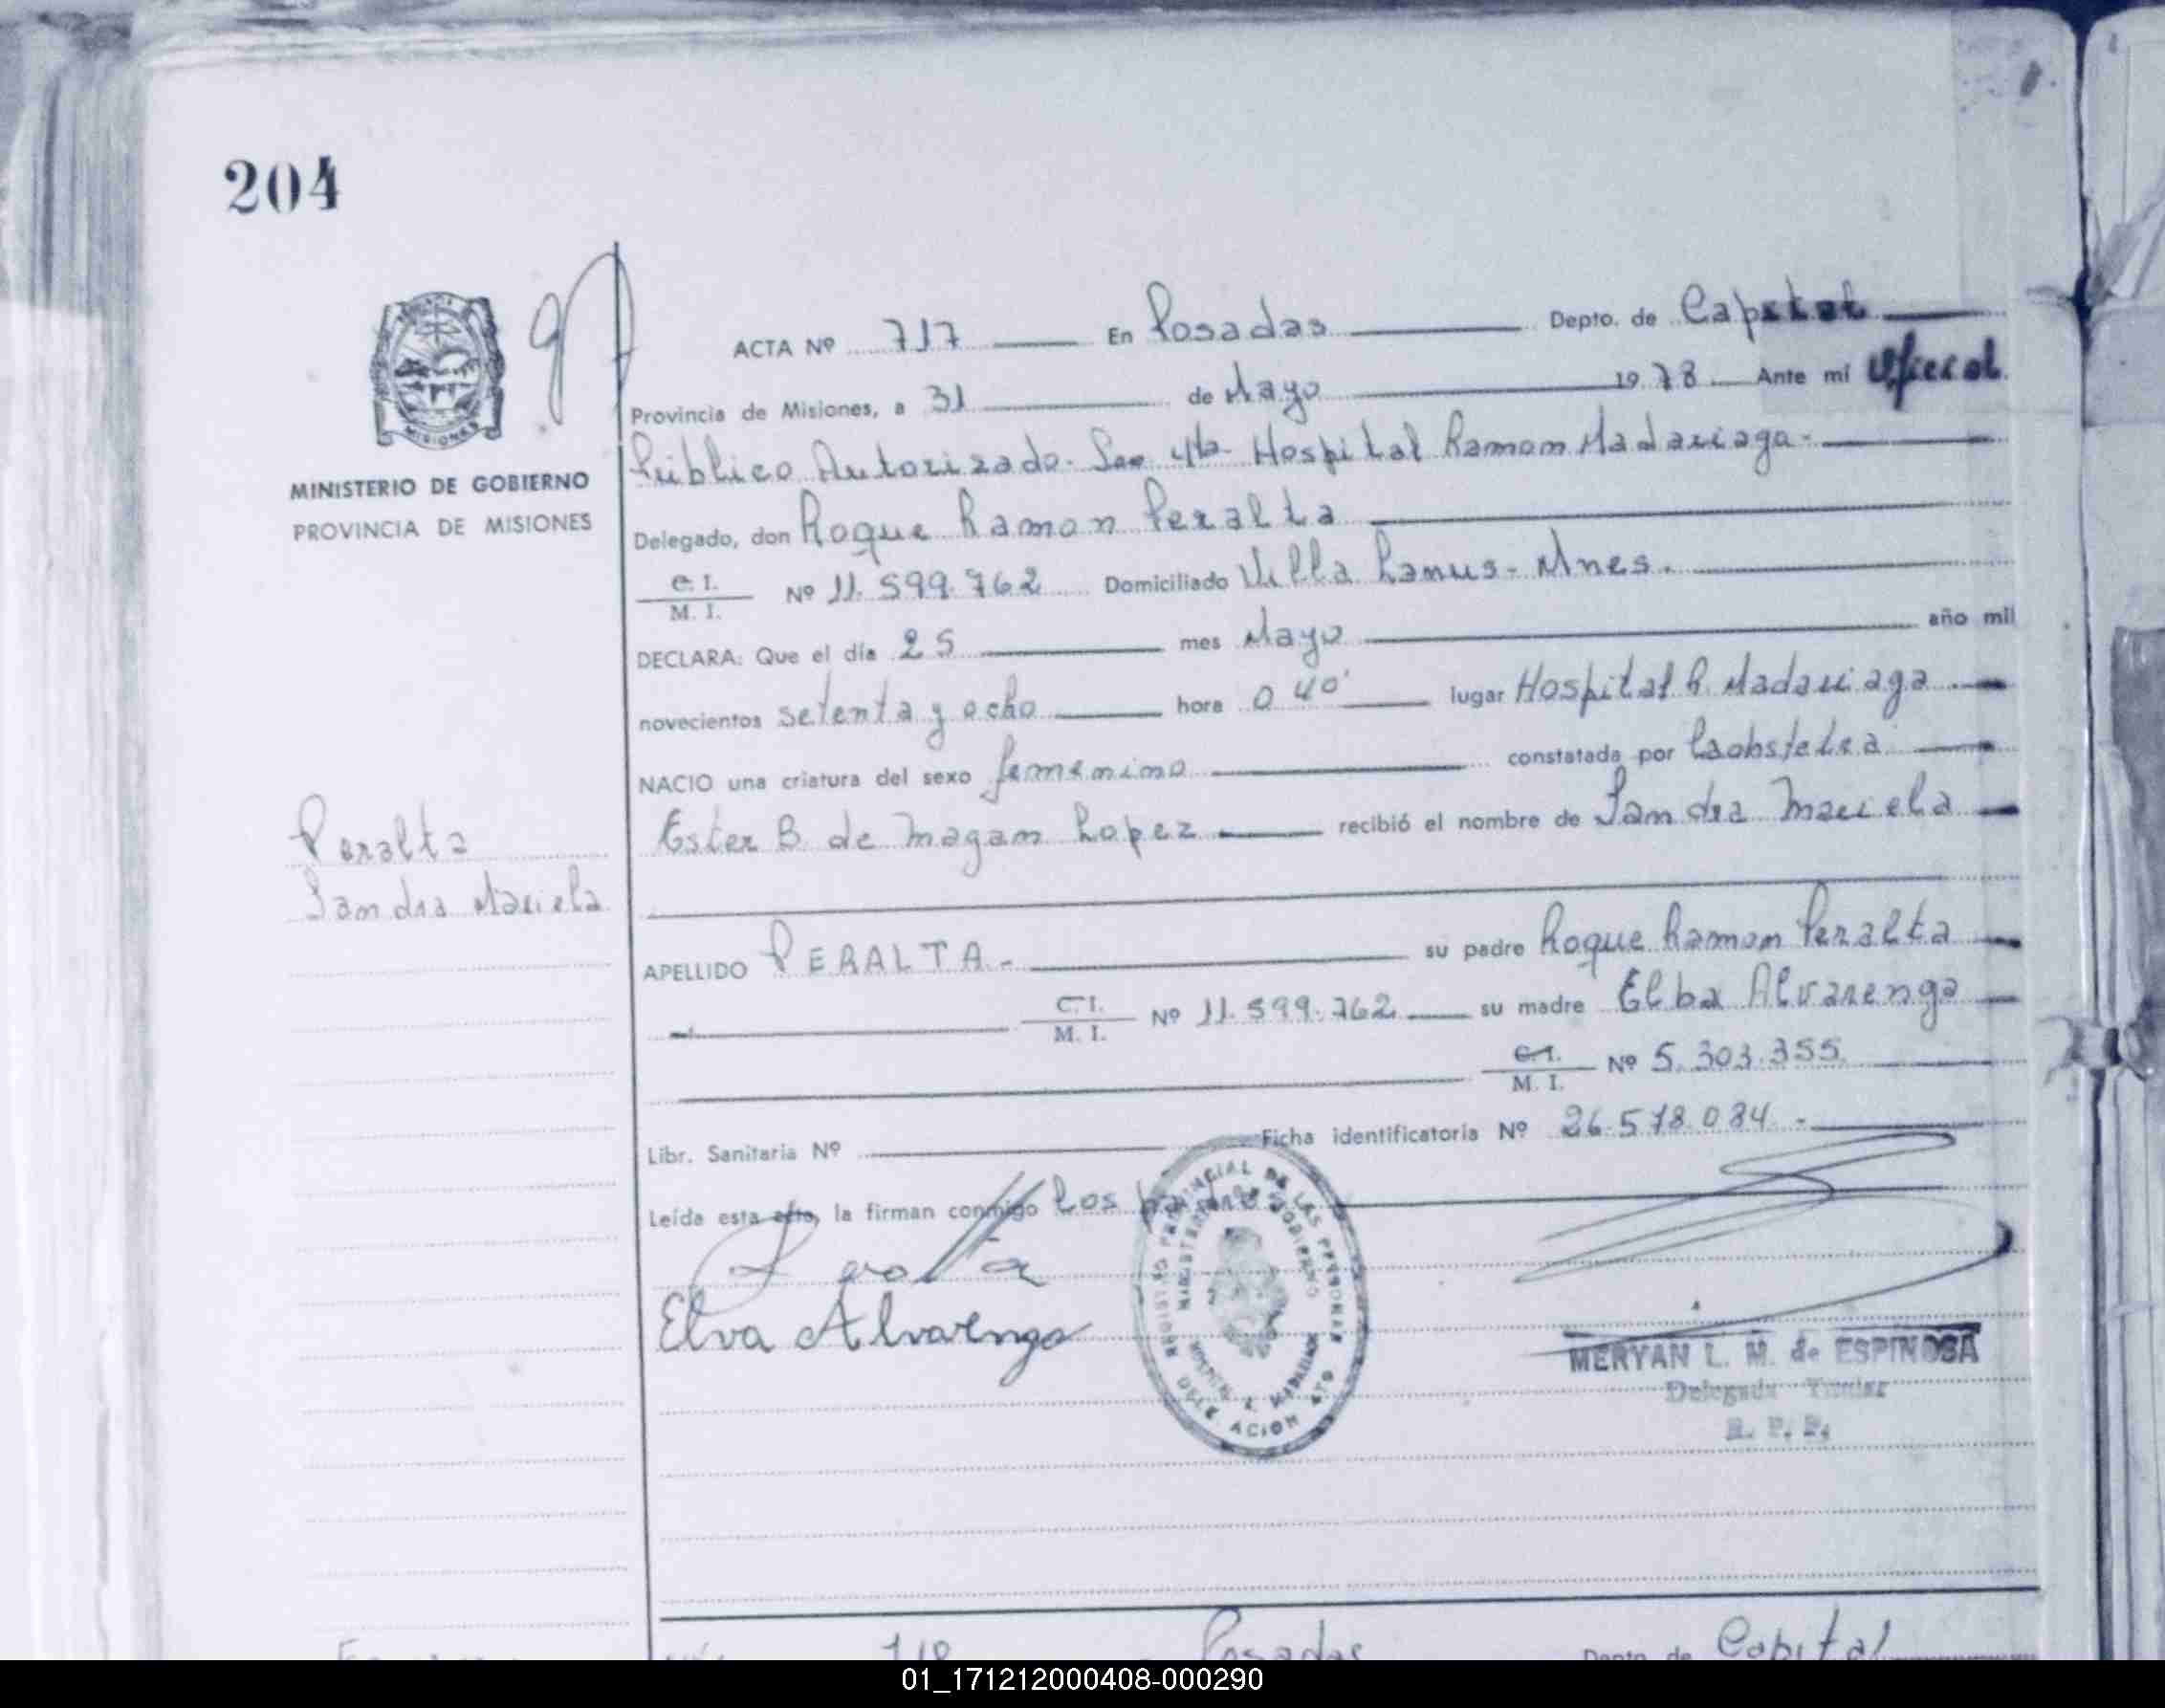 204
ACTA Nº 717 En Posadas Depto. de Capital
Provincia de Misiones, a 31 de Mayo 1978 Ante mi Oficial
Público Autorizado. Sec 4ta Hospital Ramon Madariaga.
MINISTERIO DE GOBIERNO
PROVINCIA DE MISIONES
Delegado, don Roque Ramon Peralta
C. I.
M. I. Nº 11.599.762 Domiciliado Villa Lanus - Mnes.
DECLARA: Que el día 25 mes Mayo año mil
novecientos setenta y ocho hora 0 40' lugar Hospital R. Madariaga
NACIO una criatura del sexo femenino constatada por La obstetra
Ester B. de Magam Lopez recibió el nombre de Sandra Mariela
Peralta
Sandra Mariela
APELLIDO PERALTA.- su padre Roque Ramon Peralta
C. I.
M. I. Nº 11.599.762 su madre Elba Alvarenga
C. I.
M. I. Nº 5.303.355
Libr. Sanitaria Nº Ficha identificatoria Nº 26.578.084.-
Leída esta acta, la firman conmigo los
Elva Alvarenga
REGISTRO PROVINCIAL DE LAS PERSONAS
MINISTERIO DE GOBIERNO
HOSPITAL R. MADARIAGA
DELEGACION 4TA
MERYAN L. M. de ESPINOSA
Delegada Titular
R. P. P.
718 Posadas Depto. de Capital
01_171212000408-000290